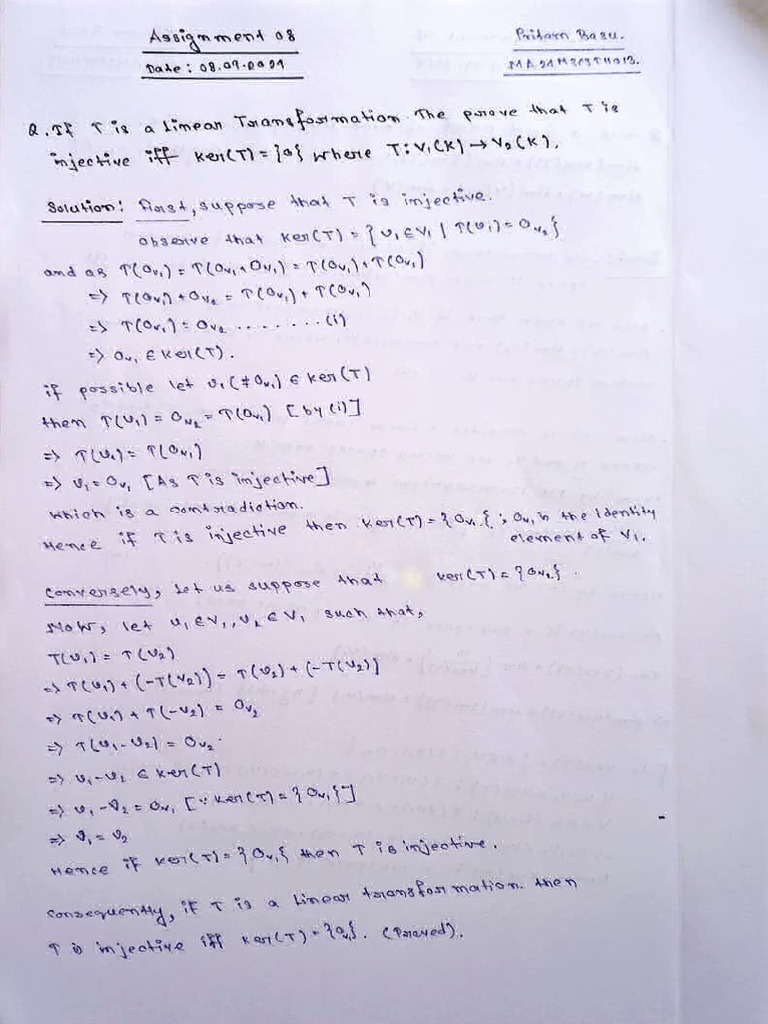 Assignment 08
Pritam Basu.
Date: 08.09.2021
MA21M213TH013.
Q. If T is a Linear Transformation. The prove that T is
injective iff Ker(T) = {0} where T: V₁(K) → V₂(K).
Solution: First, suppose that T is injective.
observe that Ker(T) = { v₁ ∈ V₁ | T(v₁) = 0ᵥ₂ }
and as T(0ᵥ₁) = T(0ᵥ₁ + 0ᵥ₁) = T(0ᵥ₁) + T(0ᵥ₁)
=> T(0ᵥ₁) + 0ᵥ₂ = T(0ᵥ₁) + T(0ᵥ₁)
=> T(0ᵥ₁) = 0ᵥ₂ ........ (i)
=> 0ᵥ₁ ∈ Ker(T).
if possible let v₁ (≠ 0ᵥ₁) ∈ Ker(T)
then T(v₁) = 0ᵥ₂ = T(0ᵥ₁) [by (i)]
=> T(v₁) = T(0ᵥ₁)
=> v₁ = 0ᵥ₁ [As T is injective]
which is a contradiction.
Hence if T is injective then Ker(T) = {0ᵥ₁} ; 0ᵥ₁ is the identity
element of V₁.
Conversely, Let us suppose that Ker(T) = {0ᵥ₂}.
Now, let v₁ ∈ V₁, v₂ ∈ V₁ such that,
T(v₁) = T(v₂)
=> T(v₁) + (-T(v₂)) = T(v₂) + (-T(v₂))
=> T(v₁) + T(-v₂) = 0ᵥ₂
=> T(v₁ - v₂) = 0ᵥ₂.
=> v₁ - v₂ ∈ Ker(T)
=> v₁ - v₂ = 0ᵥ₁ [∵ Ker(T) = {0ᵥ₁}]
=> v₁ = v₂
Hence if Ker(T) = {0ᵥ₁} then T is injective.
Consequently, if T is a Linear transformation. then
T is injective iff Ker(T) = {0ᵥ₁}. (Proved).